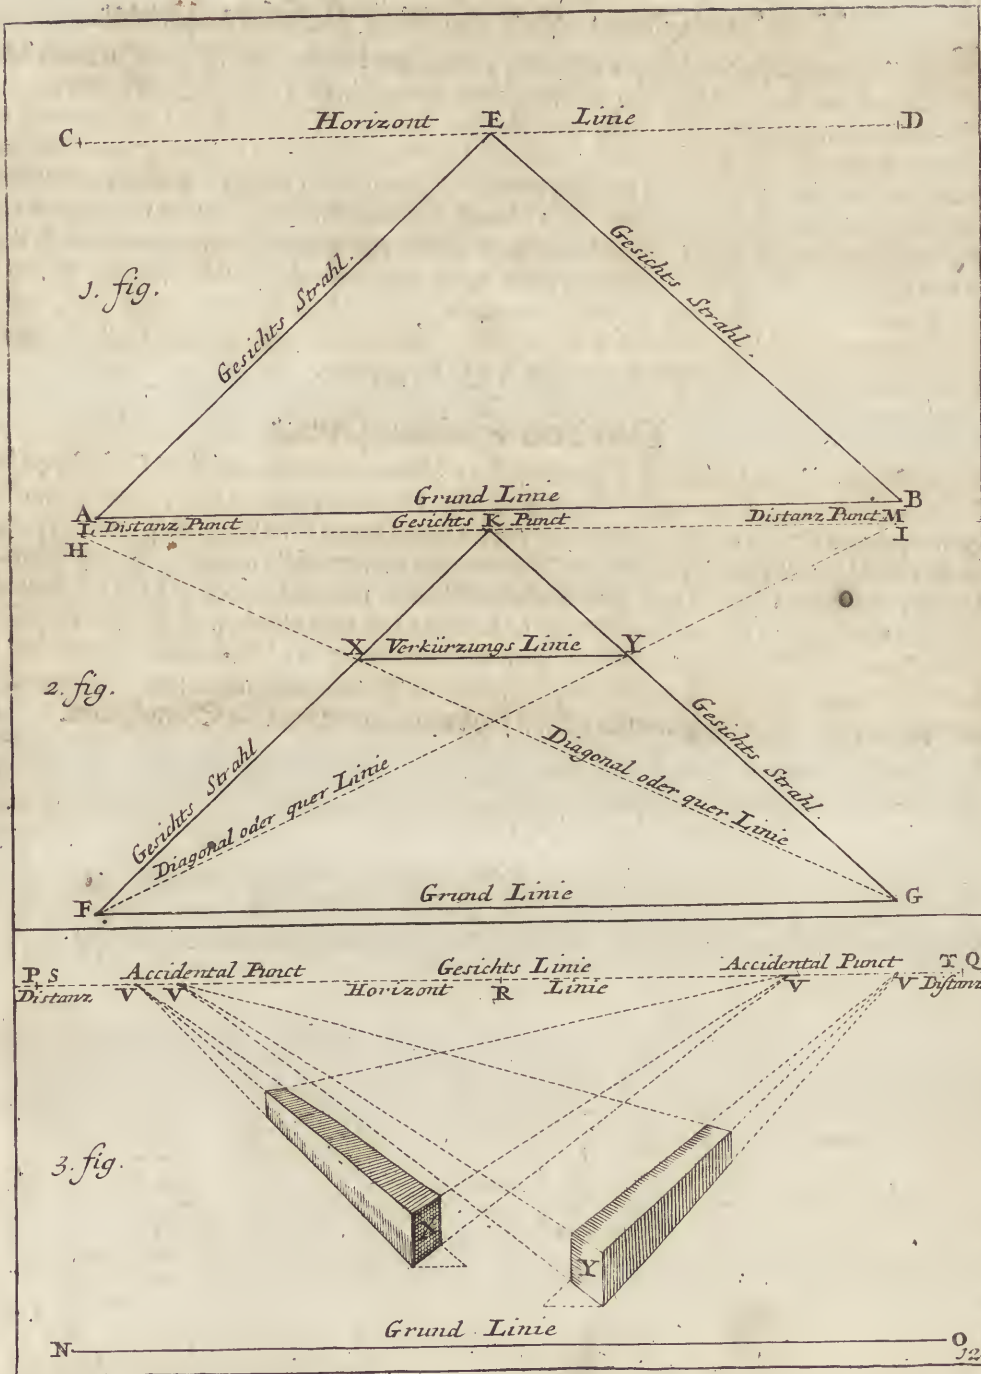 C Horizont E Linie D
1. fig.
Gesichts Strahl.
Gesichts Strahl.
A Grund Linie B
L Distanz Punct Gesichts K Punct Distanz Punct M
H I
X Verkürzungs Linie Y
2. fig.
Gesichts Strahl
Diagonal oder quer Linie
Diagonal oder quer Linie
Gesichts Strahl.
F Grund Linie G
P S Accidental Punct Gesichts Linie Accidental Punct T Q
Distanz V V Horizont R Linie V V Distanz
3. fig.
X
Y
Grund Linie
N O
12